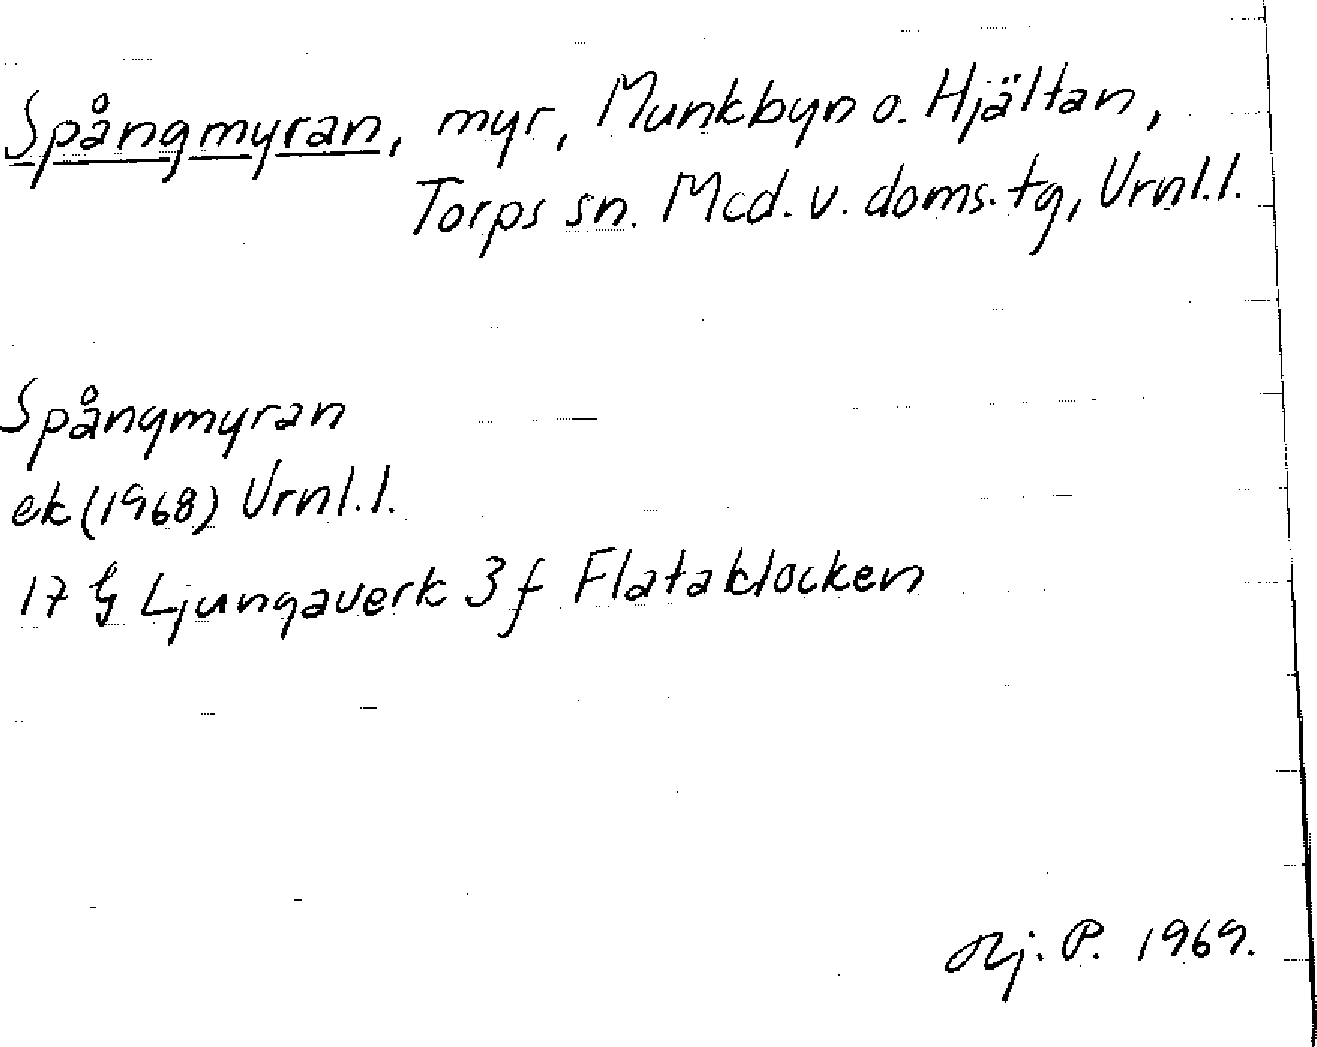 Spångmyran, myr, Munkbyn o. Hjältan,
Torps sn. Med. v. doms. tg, Vrnl.l.
Spångmyran
ek (1968) Vrnl.l.
17 G Ljungaverk 3 f Flataklocken
Hj. P. 1969.